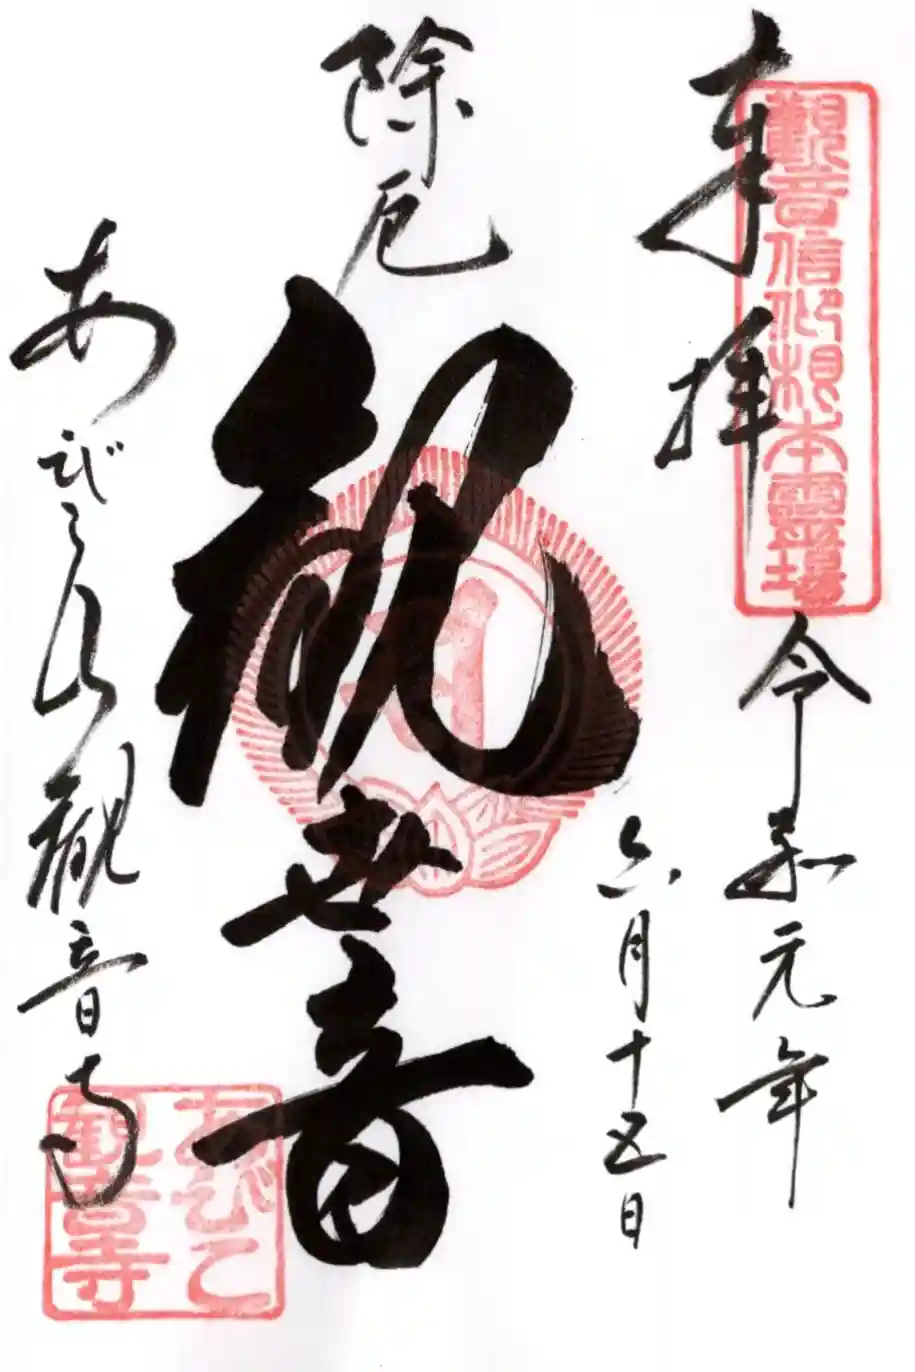 奉拝
觀音信仰根本霊場
令和元年
六月十五日
除厄
観世音
あびこ山観音寺
あびこ
観音寺